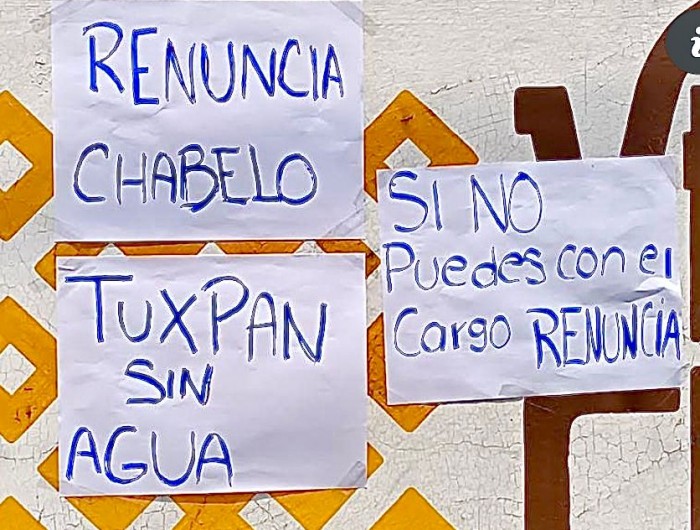 RENUNCIA
CHABELO
TUXPAN
SIN
AGUA
SI NO
Puedes con el
Cargo RENUNCIA